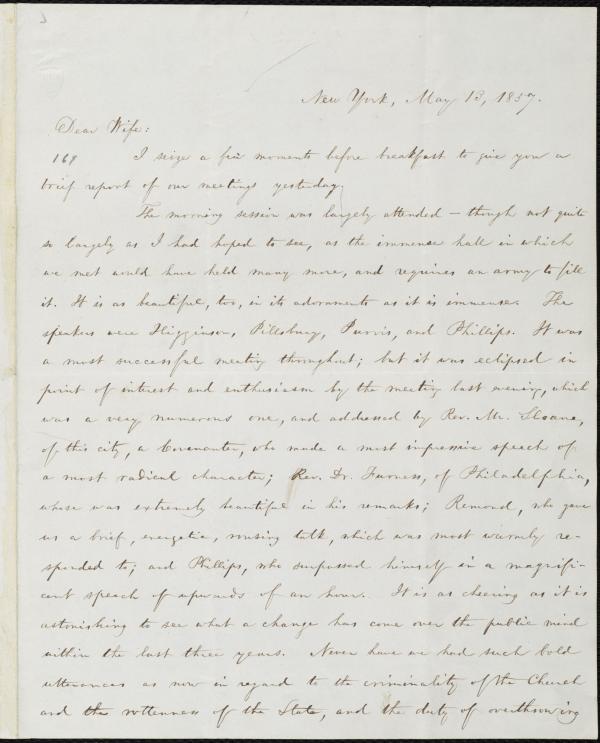 New York, May 13, 1857.
Dear Wife:
I seize a few moments before breakfast to give you a
brief report of our meetings yesterday.
The morning session was largely attended — though not quite
so largely as I had hoped to see, as the immense hall in which
we met would have held many more, and requires an army to fill
it. It is as beautiful, too, in its adornments as it is immense. The
speakers were Higginson, Pillsbury, Purvis, and Phillips. It was
a most successful meeting throughout; but it was eclipsed in
point of interest and enthusiasm by the meeting last evening, which
was a very numerous one, and addressed by Rev. Mr. Sloane,
of this city, a Covenanter, who made a most impressive speech of
a most radical character; Rev. Dr. Furness, of Philadelphia,
whose was extremely beautiful in his remarks; Remond, who gave
us a brief, energetic, rousing talk, which was most warmly re-
sponded to; and Phillips, who surpassed himself in a magnifi-
cent speech of upwards of an hour. It is as cheering as it is
astonishing to see what a change has come over the public mind
within the last three years. Never have we had such bold
utterances as now in regard to the criminality of the Church
and the rottenness of the State, and the duty of overthrowing